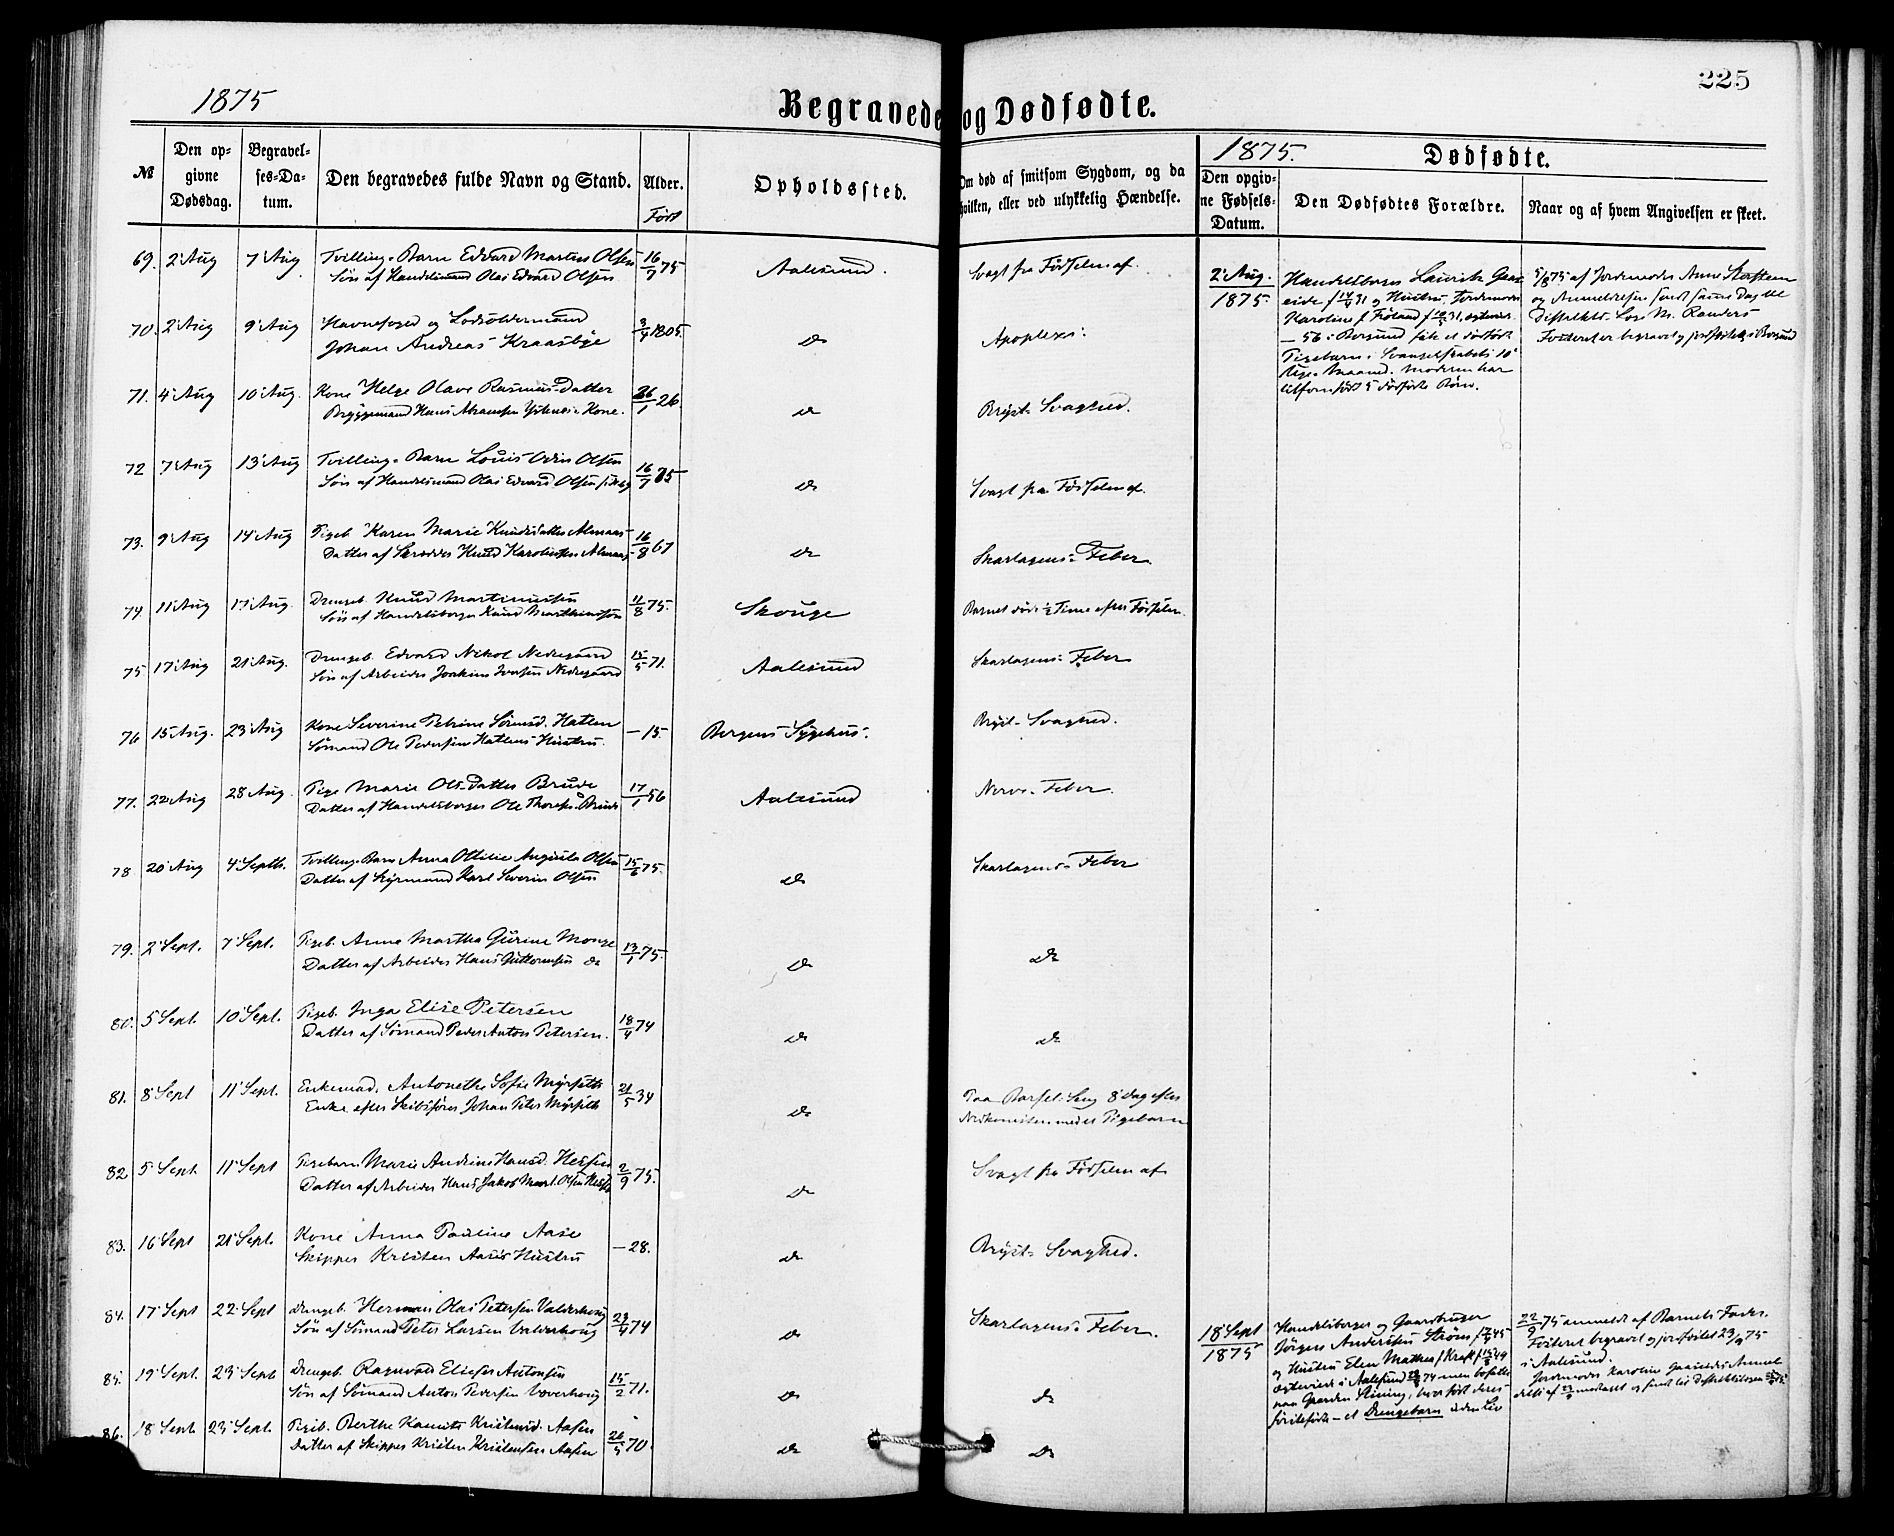 225
1875
Begravede og Dødfødte.
№
Den op-
givne
Dødsdag.
Begravel-
ses-Da-
tum.
Den begravedes fulde Navn og Stand.
Alder.
Født
Opholdssted.
Om død af smitsom Sygdom, og da
hvilken, eller ved ulykkelig Hændelse.
1875.
Dødfødte.
Den opgiv-
ne Fødsels-
Datum.
Den Dødfødtes Forældre.
Naar og af hvem Angivelsen er skeet.
69. 2 Aug 7 Aug Tvilling-Barn Edvard Martin Olsen 16/7 75 Aalesund. Svagt fra Fødselen af.
Søn af Handelsmand Olai Edvard Olsen
70. 2 Aug 9 Aug Havnefoged og Lodsoldermand 3/4 1805. do Apoplexi.
Johan Andreas Kraasbye
71. 4 Aug 10 Aug. Kone Helge Olave Rasmus-Datter 26/1 26. do Bryst-Svaghed.
Bryggemand Hans Abramsen Kone.
72 7 Aug 13 Aug Tvilling-Barn Louis Odin Olsen 16/7 75 do Svagt fra Fødselen af.
Søn af Handelsmand Olai Edvard Olsen
73. 9 Aug 14 Aug Pigeb. Karen Marie Knudsdatter Almaas 16/8 67 do Skarlagens-Feber.
Datter af Skrædder Knud Karolussen Almaas
74. 11 Aug 17 Aug. Drengeb. Knud Martinussen 11/8 75. Skouge Barnet døde ½ Time efter Fødselen.
Søn af Handelsborger Knud Martinussen
75. 17 Aug 21 Aug. Drengeb. Edvard Nikol Nedregaard 15/5 71. Aalesund Skarlagens-Feber
Søn af Arbeider Joakim Iversen Nedregaard
76 15 Aug. 23 Aug Kone Severine Petrine Sørensd. Hatlen — 15. Bergens Sygehus. Bryst-Svaghed.
Sømand Ole Pedersen Hatlens Hustru.
77. 22 Aug 28 Aug. Pige Marie Ols-Datter Brude 17/1 56 Aalesund Nerve-Feber.
Datter af Handelsborger Ole Thoresen Brude
78 20 Aug 4 Septb. Tvilling-Barn Anna Ottilie Augusta Olsen 15/6 75. do Skarlagens-Feber
Datter af Styrmand Karl Severin Olsen
79. 2 Sept. 7 Sept. Pigeb. Anna Martha Gurine Monge 13/1 75. do do
Datter af Arbeider Hans Guttormsen do
80. 5 Sept. 10 Sept. Pigeb. Inga Elise Petersen 18/4 74 do do
Datter af Sømand Peder Anton Petersen.
81. 8 Sept 11 Sept. Enkemad. Antonethe Sofie Myrseth 21/5 34 do Paa Barsel-Seng 8 Dag efter
Enke efter Skibsfører Johan Peter Myrseth Nedkomsten med et Pigebarn
82 5 Sept. 11 Sept Pigebarn Marie Andrine Hansd. Hessen 2/9 75. do Svagt fra Fødselen af
Datter af Arbeider Hans Jakob Mart. Olsen
83. 16 Sept 21 Sept. Kone Anna Pauline Aase — 28. do Bryst-Svaghed.
Skipper Kristen Aases Hustru
84. 17 Sept 22 Sept Drengeb. Herman Olai Petersen Valderhoug 29/4 74 do Skarlagens-Feber.
Søn af Sømand Peter Larsen Valderhoug
85. 19 Sept. 23 Sept Drengeb. Ragnvald Elieser Antonsen 15/2 71. do do
Søn af Sømand Anton Pedersen
86. 18 Sept 23 Sept. Pigeb. Berthe Kristensd. Aasen 26/5 70. do do
Datter af Skipper Kristen Kristensen Aasen
2 Aug.
1875.
Handelsborger Laurits Gaas-
eide f 14/4 31 og Hustru, Jordemoder
Karoline f. Frøland f 10/5 31, ægteviet
— 56 i Borgund fik et dødfødt
Pigebarn i Svangerskabets 10
Uge-Maaned. Moderen har
tilforn født 5 dødfødte Børn.
5/8 75 af Jordemoder Anne
og Anmeldelsen sendt samme Dag til
Distriktslæge M. Randers
Fosteret er begravet og jordfæstet i Borgund
18 Sept
1875
Handelsborger og Gaardbruger
Jørgen Anderssen Strøm 45
og Hustru Elen Mathea f Kraft 49
ægteviede i Aalesund 74 men bosatte
paa Gaarden har født deres
førstefødte – et Drengebarn uden Liv
22/9 75 anmeldt af Barnets Fader.
Fosteret begravet og jordfæstet 23/9 75
i Aalesund.
Jordemoder Karoline Gaaseides Anmel-
delse af modtaget og sendt til Distriktslægen